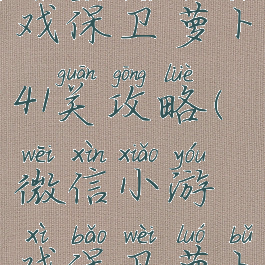 戏保卫萝卜
guān gōng lüè
41关攻略(
wēi xìn xiǎo yóu
微信小游
xì bǎo wèi luó bǔ
戏保卫萝卜